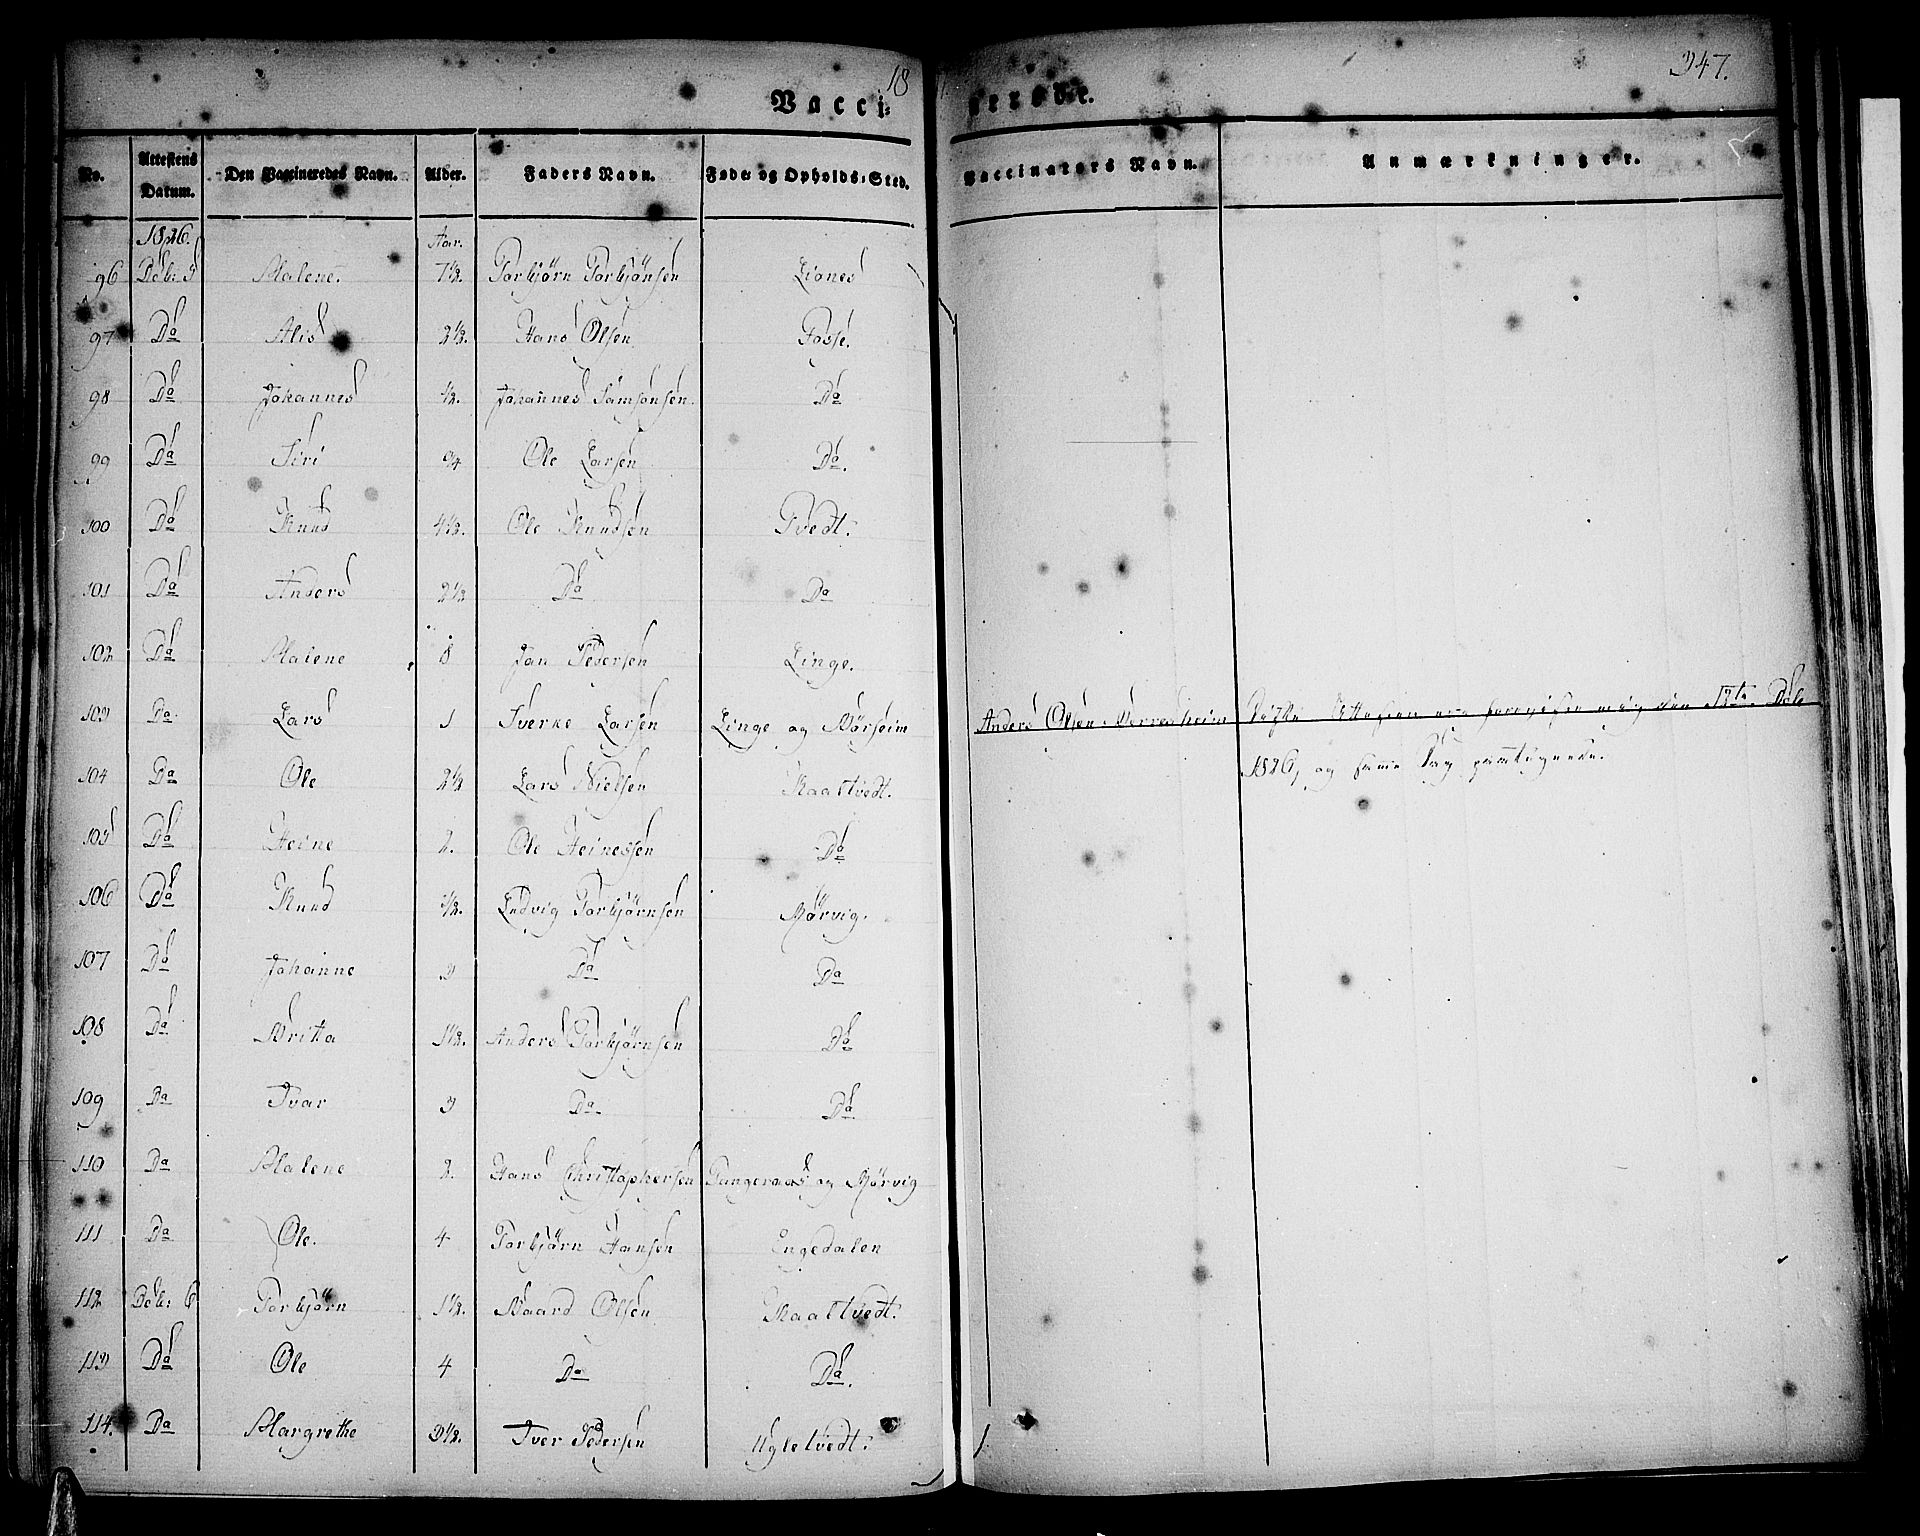 18
347.
Vacci-
nerede.
No. Attestens Datum. Den Vaccineredes Navn. Alder. Faders Navn. Føde- og Opholds-Sted. Vaccinators Navn. Anmærkninger.
1826. Aar.
96 Dcbr. 5 Malene. 7 1/2. Torbjörn Torbjönsen Lianes
97 Do Alis 2 1/2. Hans Olsen Fosse.
98 Do Johannes 1/2. Johannes Samsonsen. Do
99 Do Siri 3/4 Ole Larsen Do.
100 Do Knud 4 1/2. Ole Knudsen Tvedt.
101 Do Anders 2 1/2 Do Do
102 Do Malene 8 Jan Pedersen Linge.
103 Do Lars 1 Sverke Larsen Linge og Mörseim Anders Olsen Norresheim Attesten den 12te Dcbr
1826, og samme Dag
104 Do Ole 2 1/2 Lars Nielsen Kaaltvedt.
105 Do Heine 2. Ole Heinessen Do
106 Do Knud 1/2. Ludvig Torbjörnsen Mörvig.
107 Do Johanne 3 Do Do
108 Do Britta 1 1/2. Anders Torbjörnsen Do
109 Do Ivar 3 Do Do
110 Do Malene 2. Hans Christophersen Tangeraas og Mörvig
111 Do Ole. 4 Torbjörn Hansen Engedalen
112 Dcbr. 6 Torbjörn 1 1/2. Baard Olsen Kaaltvedt.
113 Do Ole 4 Do Do.
114. Do Margrethe 3 1/2. Iver Pedersen Ugletvedt.